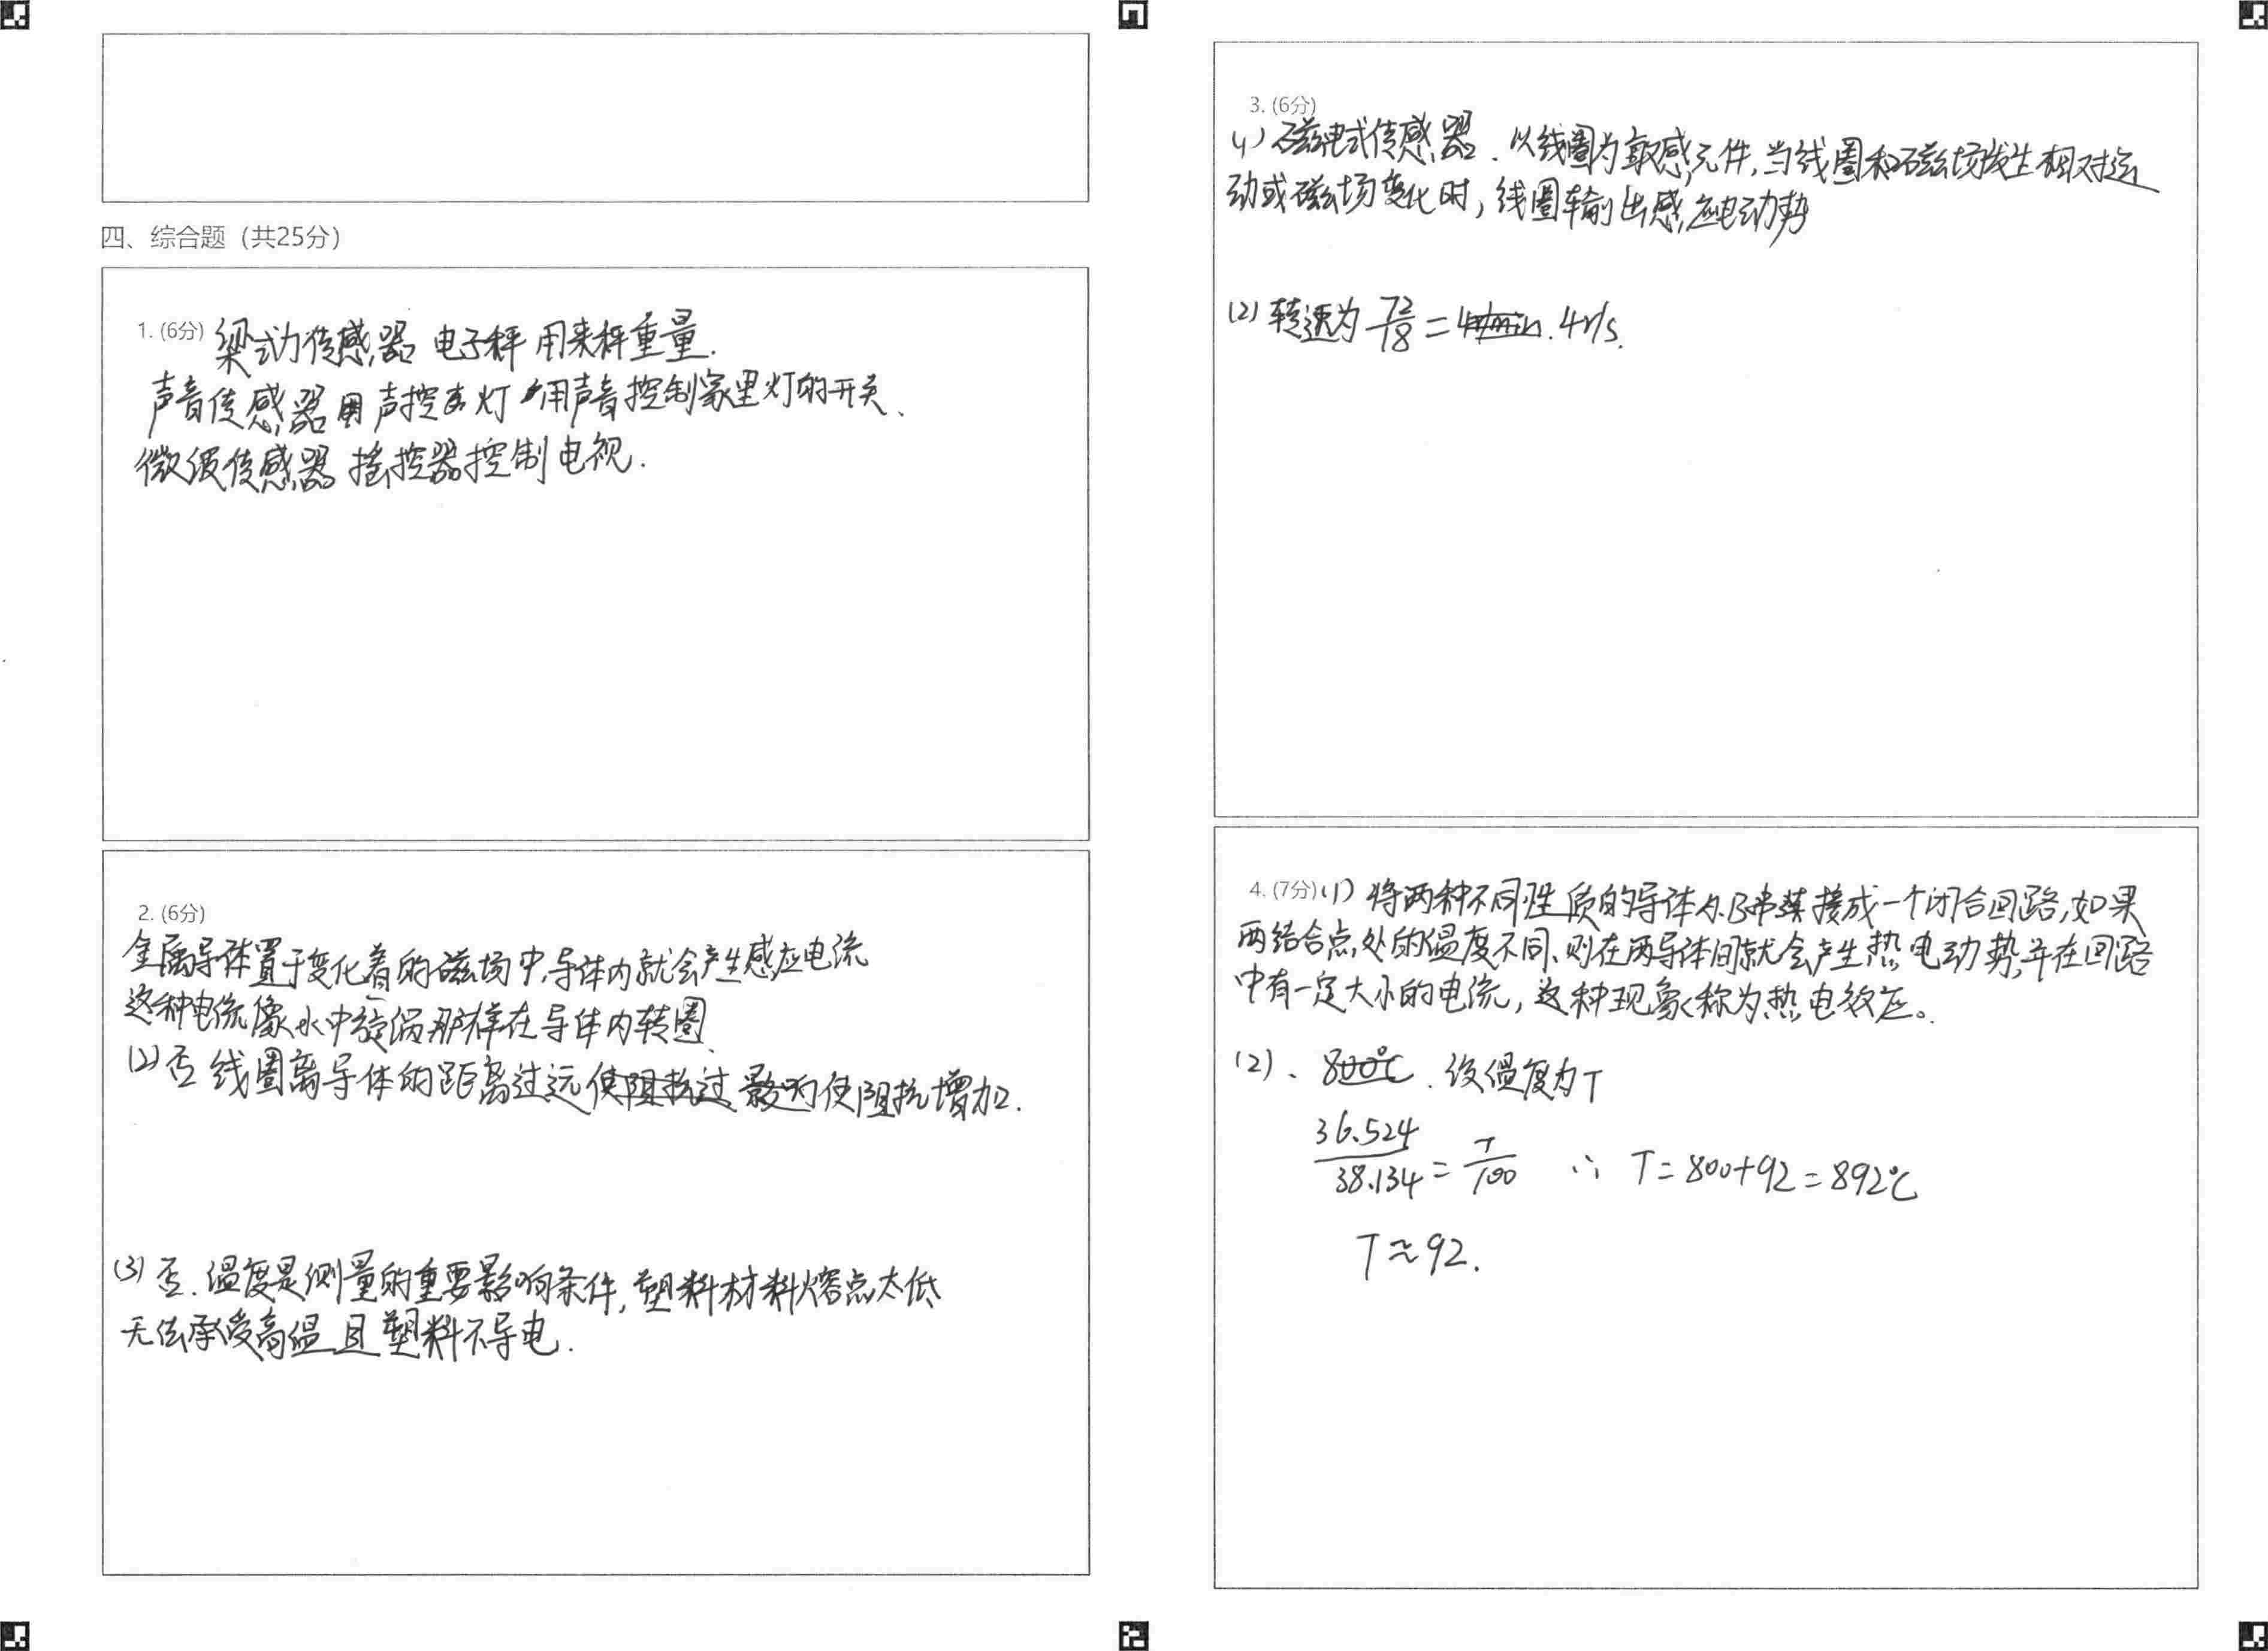 四、综合题（共25分）
1. (6分) 梁式力传感器 电子秤 用来秤重量.
声音传感器 声控灯 用声音控制家里灯的开关、
微波传感器 摇控器控制电视.
2. (6分)
金属导体置于变化着的磁场中,导体内就会产生感应电流
这种电流像水中旋涡那样在导体内转圈
(2) 否 线圈离导体的距离过远使阻抗过 影响使阻抗增加.
(3) 否. 温度是测量的重要影响条件, 塑料材料熔点太低
无法承受高温 且塑料不导电.
3. (6分)
(1) 磁电式传感器. 以线圈为敏感元件,当线圈和磁场发生相对运
动或磁场变化时, 线圈输出感应电动势
(2) 转速为 72/18 = 4r/min. 4r/s.
4. (7分) (1) 将两种不同性质的导体A.B串联接成一个闭合回路,如果
两结合点处的温度不同、则在两导体间就会产生热电动势,并在回路
中有一定大小的电流, 这种现象称为热电效应。
(2)、800℃. 设温度为T
36.524/38.134 = T/100 ∴ T=800+92=892℃
T≈92.